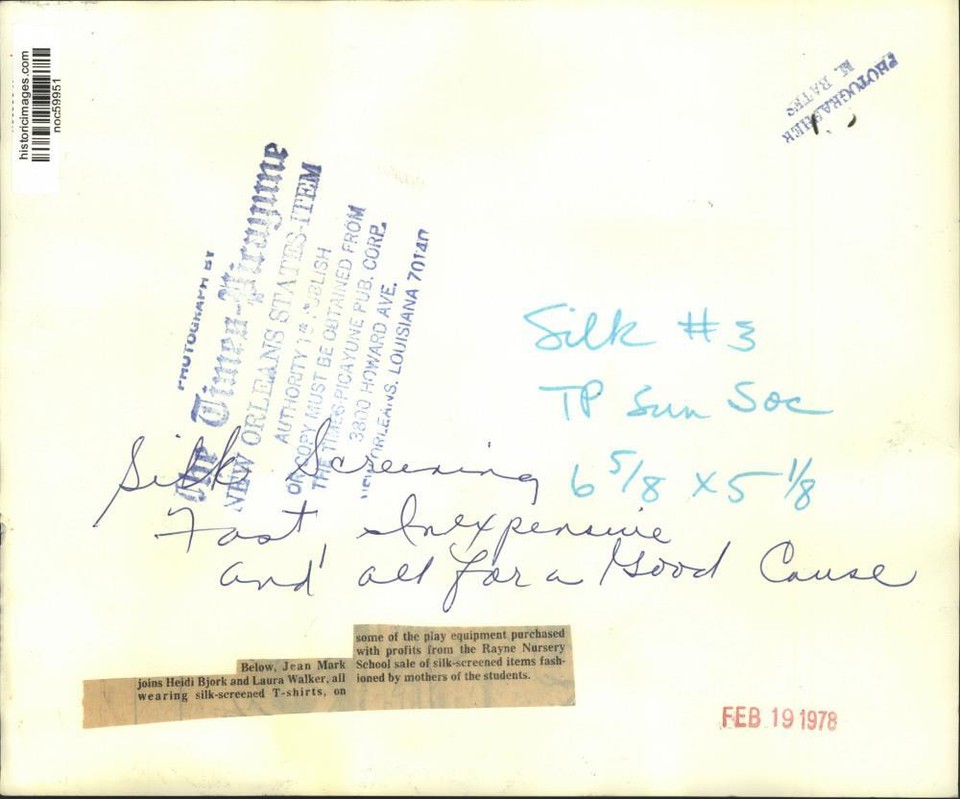 historicimages.com
noc59951
PHOTOGRAPHER
M. BATES
PHOTOGRAPH BY
The Times-Picayune
NEW ORLEANS STATES-ITEM
AUTHORITY TO PUBLISH
OR COPY MUST BE OBTAINED FROM
THE TIMES-PICAYUNE PUB. CORP.
3800 HOWARD AVE.
NEW ORLEANS, LOUISIANA 70140
Silk #3
TP Sun Soc
6 5/8 x 5 1/8
Silk Screening
Fast, Inexpensive
and all for a Good Cause
Below, Jean Mark
joins Heidi Bjork and Laura Walker, all
wearing silk-screened T-shirts, on
some of the play equipment purchased
with profits from the Rayne Nursery
School sale of silk-screened items fash-
ioned by mothers of the students.
FEB 19 1978